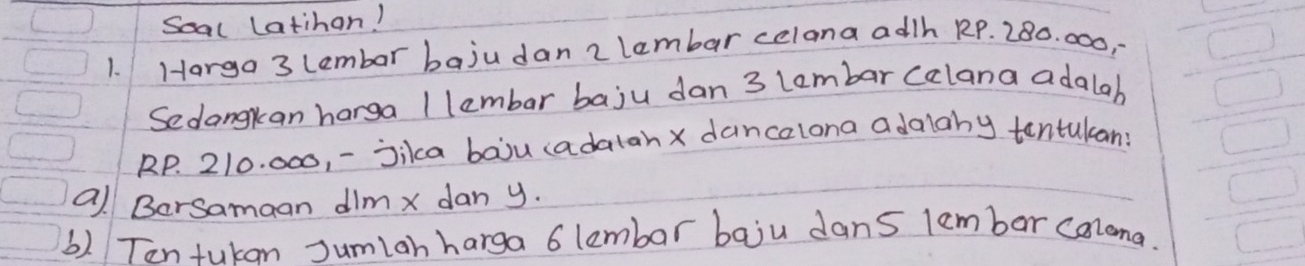 Soal Latihan!
1. Harga 3 lembar baju dan 2 lembar celana adlh RP. 280.000,-
Sedangkan harga 1 lembar baju dan 3 lembar celana adalah
RP. 210.000,- Jika baju adalah x dan celana adalah y tentukan:
a). Bersamaan dlm x dan y.
b). Tentukan Jumlah harga 6 lembar baju dan 5 lembar celana.